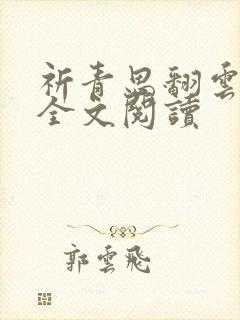 祈青思翻雲
全文閱讀
郭雲飛